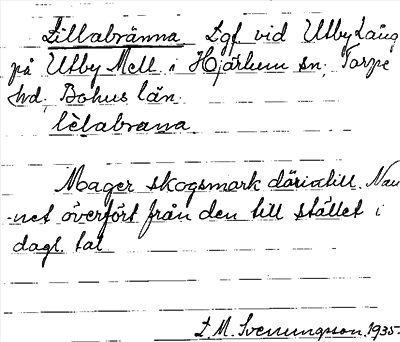 Lillabränna Lgf vid Utby Lång
på Utby Mell. i Hjärtum sn, Torpe
hd, Bohus län.
lèlabrana
Mager skogsmark därintill. Nam
-net överfört från den till stället i
dagl. tal
L. M. Svenungsson. 1935.